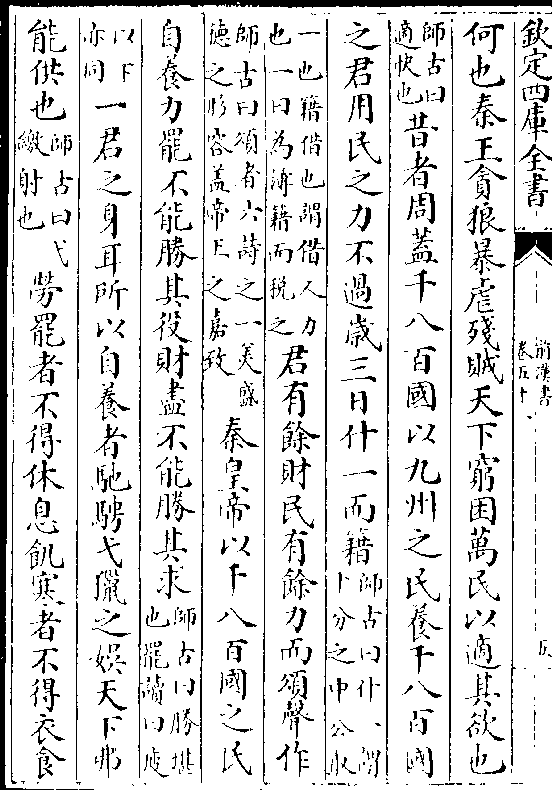 欽定四庫全書
前漢書
卷五十
何也秦王貪狼暴虐殘賊天下窮困萬民以適其欲也
師古曰
適快也
昔者周蓋千八百國以九州之民養千八百國
之君用民之力不過歲三日什一而籍
師古曰什一謂
十分之中公取
一也籍借也謂借人力
也一曰為簿籍而税之
君有餘財民有餘力而頌聲作
師古曰頌者六詩之一美盛
德之形容蓋帝王之嘉致
秦皇帝以千八百國之民
自養力罷不能勝其役財盡不能勝其求
師古曰勝堪
也罷讀曰疲
以下
亦同
一君之身耳所以自養者馳騁弋獵之娯天下弗
能供也
師古曰弋
繳射也
勞罷者不得休息飢寒者不得衣食